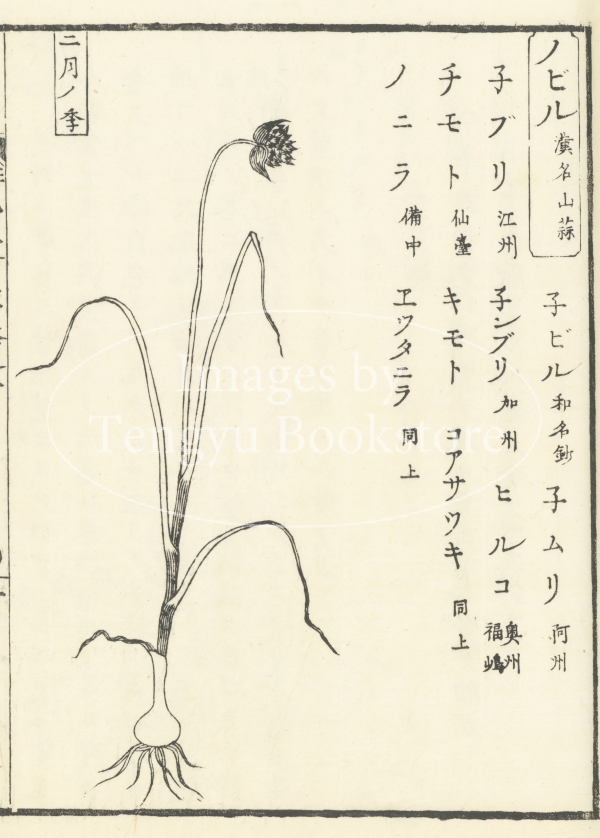 ノビル 漢名山蒜
子ビル 和名鈔 子ムリ 阿州
子ブリ 江州 子ンブリ 加州 ヒルコ 奥州福嶋
チモト 仙臺 キモト コアサツキ 同上
ノニラ 備中 ヱツタニラ 同上
三月ノ季
Images by
Tengyu Bookstore